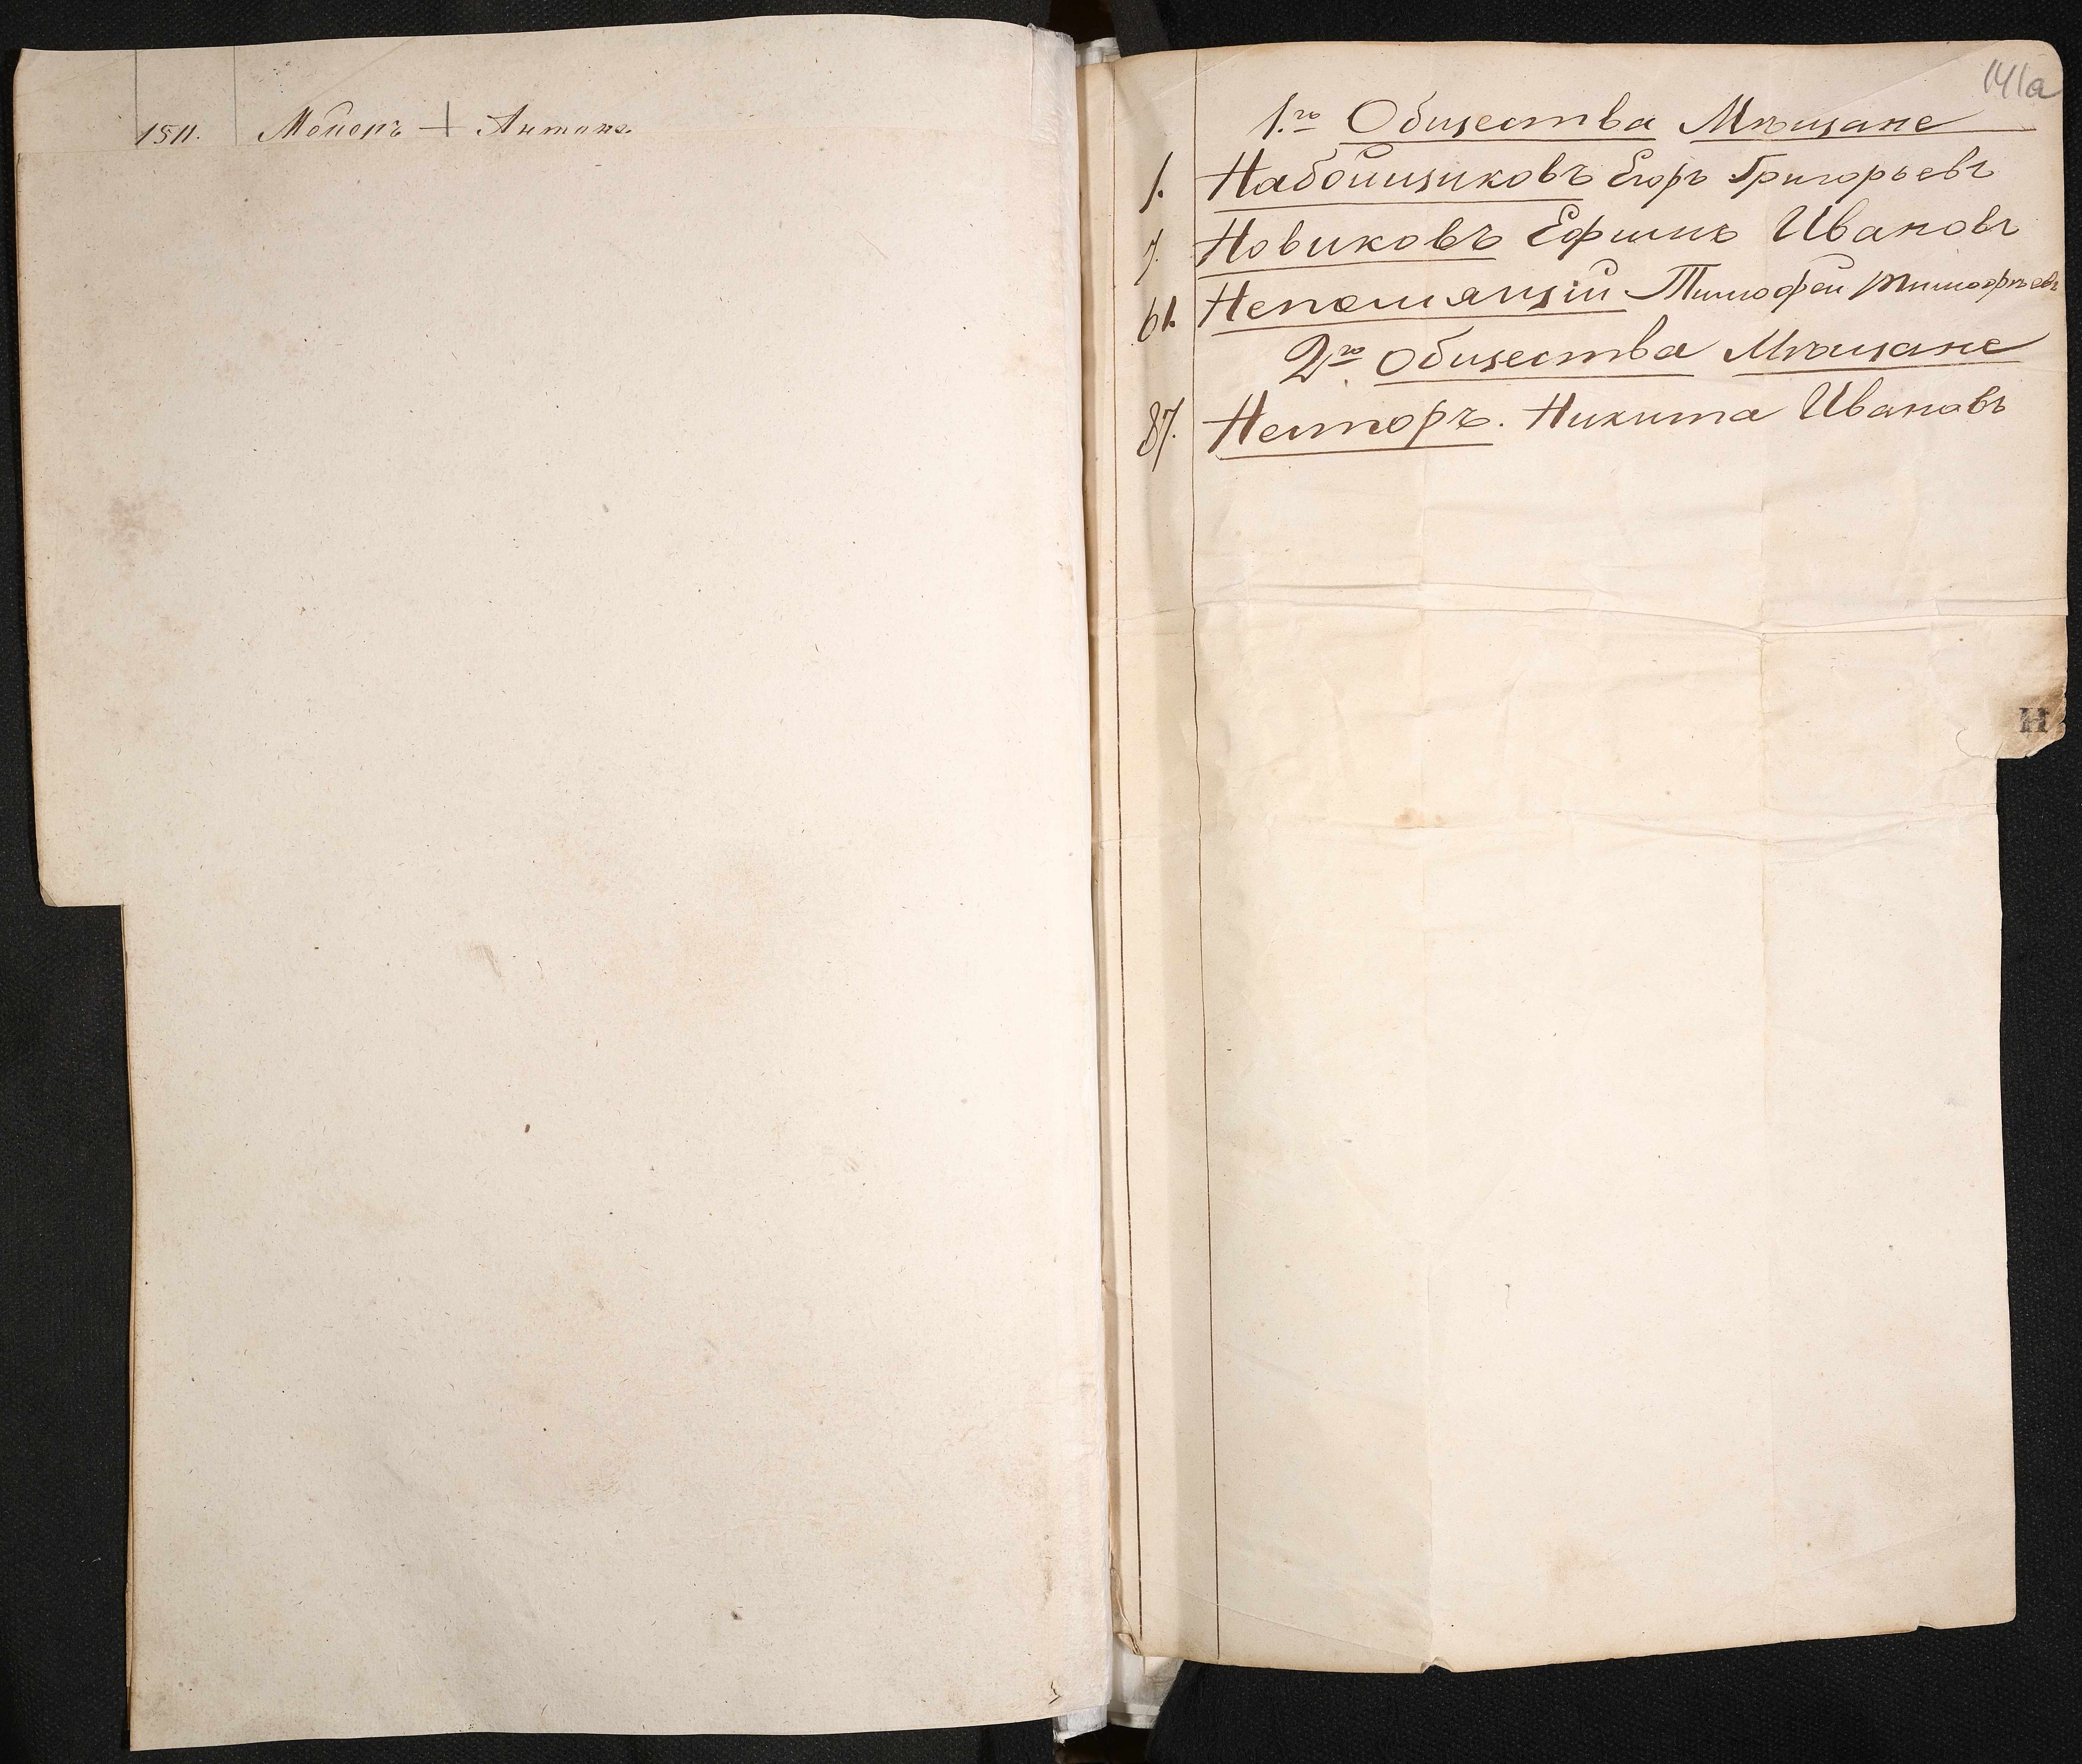 1511. Мойоръ + Антонъ
141а
1.го Общества Мѣщане
1. Набойщиковъ Егоръ Григорьевъ
7. Новиковъ Ефимъ Ивановъ
61. Непомящій Тимофей Тимофѣевъ
2го Общества Мѣщане
87. Несторъ. Никита Ивановъ
Н